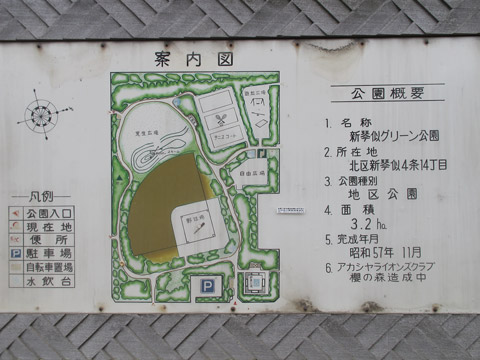 案内図
公園概要
1. 名称
新琴似グリーン公園
2. 所在地
北区新琴似4条14丁目
3. 公園種別
地区公園
4. 面積
3.2 ha.
5. 完成年月
昭和57年 11月
6. アカシヤライオンズクラブ
櫻の森造成中
凡例
公園入口
現在地
便所
P 駐車場
自転車置場
水飲台
芝生広場
テニスコート
自由広場
野球場
P